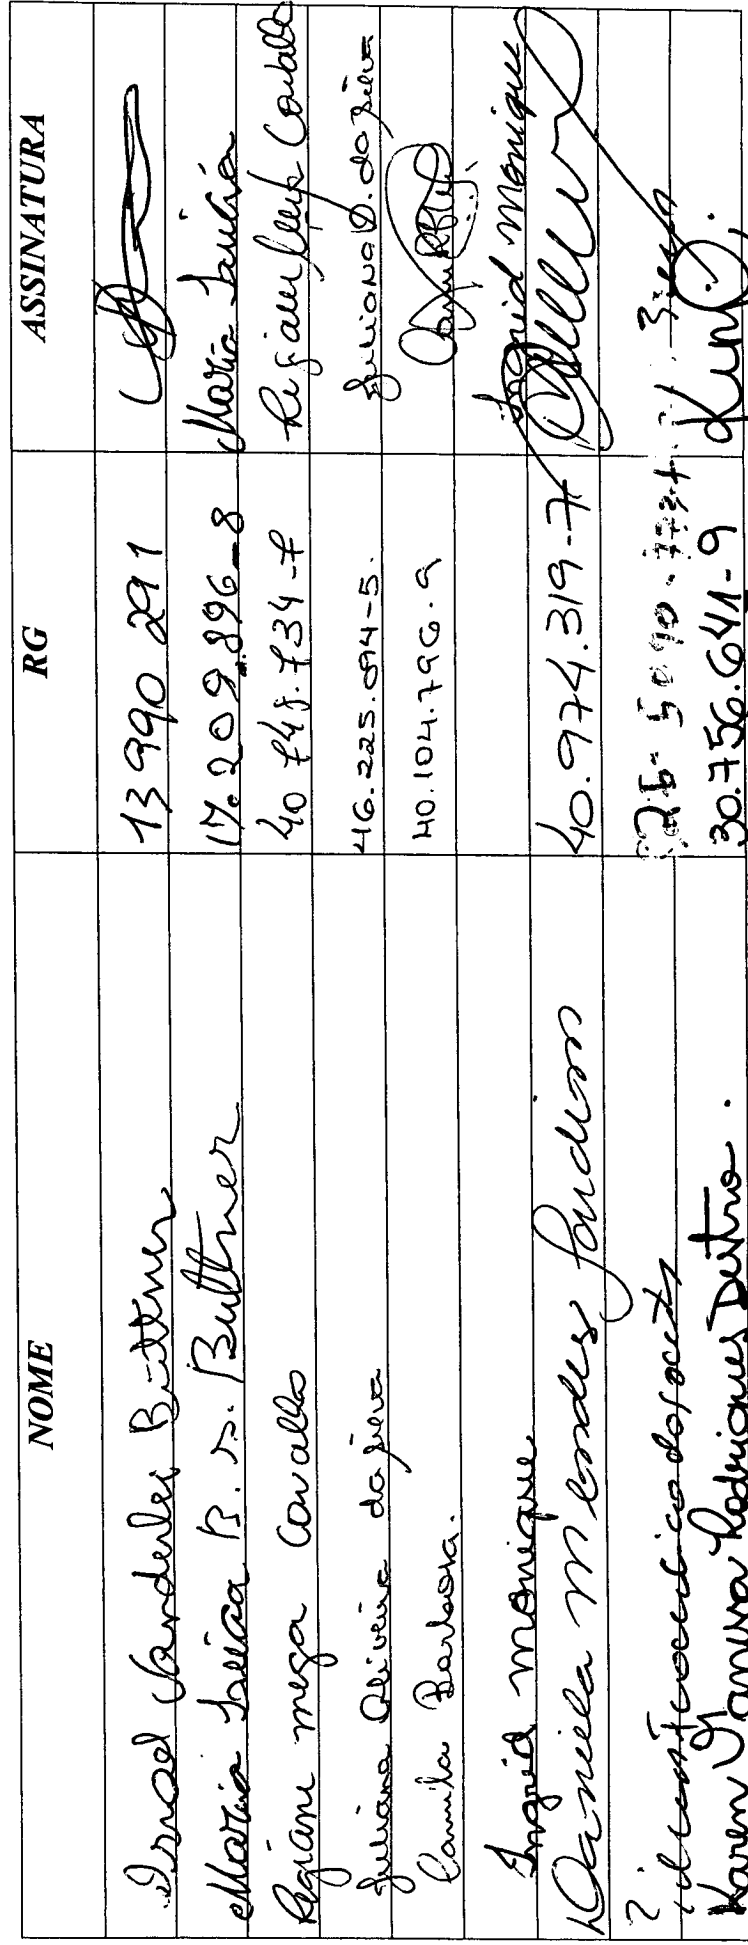 NOME RG ASSINATURA
Israel Vanderlei Büttner 13 990 291
Maria Lucia B. S. Büttner 17.209.896-8 Maria Lucia
Regiane mega Carvallo 40 748.734-7 Regiane Carvallo
Juliana Oliveira da Silva 46.225.094-5. Juliana O. da Silva
Camila Barbosa. 40.104.796-9
Ingrid Monique Ingrid Monique
Daniela Mendes 40.974.319-7
Karen Rodrigues 30.756.641-9